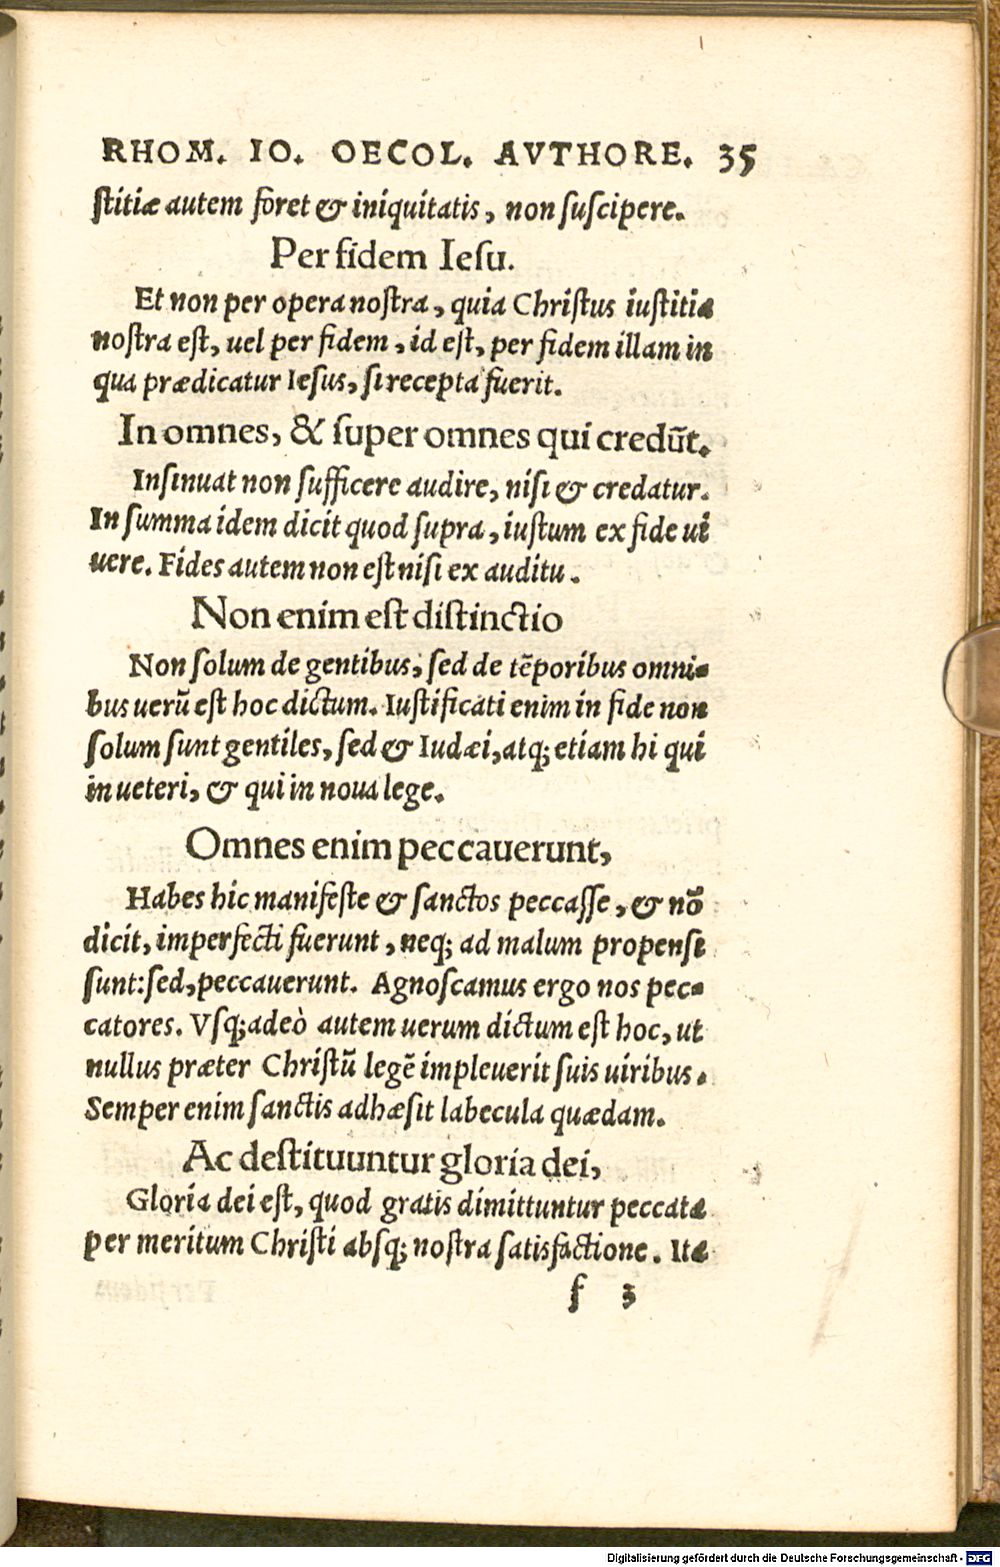 RHOM. IO. OECOL. AVTHORE. 35
ſtitiæ autem foret & iniquitatis, non ſuſcipere.
Per fidem Ieſu.
Et non per opera noſtra, quia Chriſtus iuſtitia
noſtra eſt, uel per fidem, id eſt, per fidem illam in
qua prædicatur Ieſus, ſi recepta fuerit.
In omnes, & ſuper omnes qui credūt.
Inſinuat non ſufficere audire, niſi & credatur.
In ſumma idem dicit quod ſupra, iuſtum ex fide ui
uere. Fides autem non eſt niſi ex auditu.
Non enim eſt diſtinctio
Non ſolum de gentibus, ſed de tēporibus omni-
bus uerū eſt hoc dictum. Iuſtificati enim in fide non
ſolum ſunt gentiles, ſed & Iudæi, atq; etiam hi qui
in ueteri, & qui in noua lege.
Omnes enim peccauerunt,
Habes hic manifeſte & ſanctos peccaſſe, & nō
dicit, imperfecti fuerunt, neq; ad malum propenſi
ſunt: ſed, peccauerunt. Agnoſcamus ergo nos pec-
catores. Vſq; adeò autem uerum dictum eſt hoc, ut
nullus præter Chriſtū legē impleuerit ſuis uiribus.
Semper enim ſanctis adhæſit labecula quædam.
Ac deſtituuntur gloria dei,
Gloria dei eſt, quod gratis dimittuntur peccata
per meritum Chriſti abſq; noſtra ſatisfactione. Ita
f 3
Digitalisierung gefördert durch die Deutsche Forschungsgemeinschaft - DFG